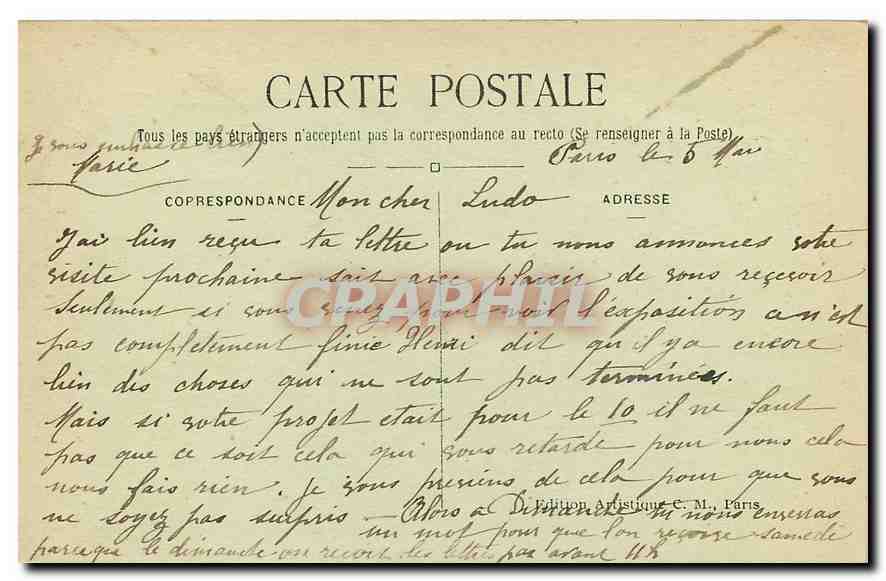 CARTE POSTALE
Tous les pays étrangers n'acceptent pas la correspondance au recto (Se renseigner à la Poste)
Je vous embrasse bien
Marie
Paris le 5 Mai
CORRESPONDANCE
ADRESSE
Mon cher Ludo
J'ai bien reçu ta lettre ou tu nous annonces votre
visite prochaine sait avec plaisir de vous reçevoir
Seulement si vous venez pour voir l'exposition ca n'est
pas completement finie Henri dit qu'il y a encore
bien des choses qui ne sont pas terminées.
Mais si votre projet etait pour le 10 il ne faut
pas que ce soit cela qui vous retarde pour nous cela
nous fais rien. je vous previens de cela pour que vous
ne soyez pas surpris - Alors a Dimanche tu nous enverras
D. Edition Artistique C. M., Paris
un mot pour que l'on reçoive samedi
parceque le dimanche on reçoit des lettres pas avant 11h
CPAPHIL